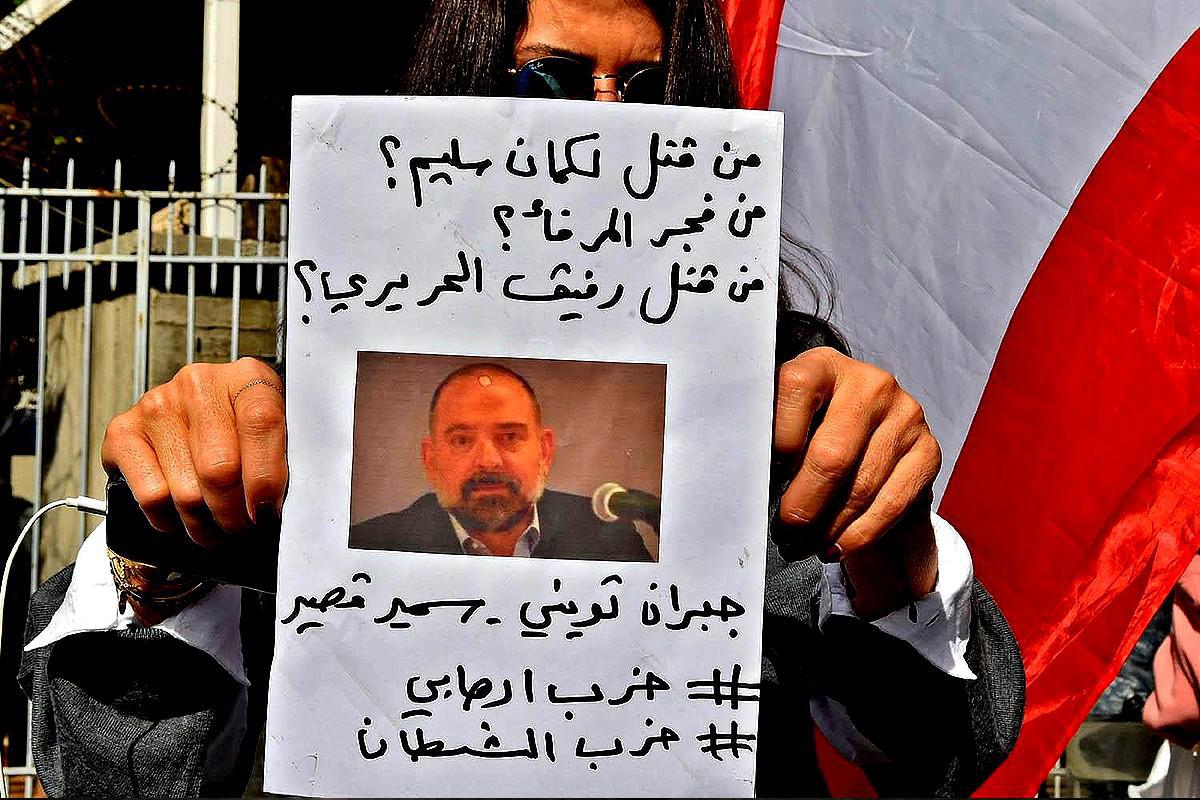 من قتل لقمان سليم؟
من فجر المرفأ؟
من قتل رفيق الحريري؟
جبران تويني - سمير قصير
# حزب ارهابي
# حزب الشيطان